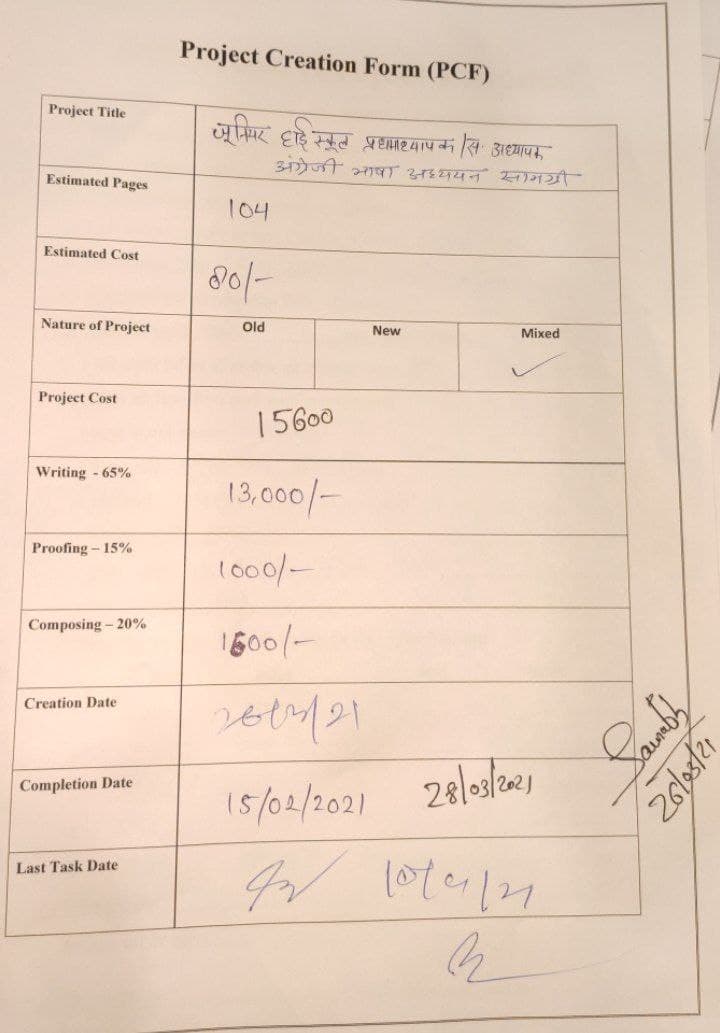 Project Creation Form (PCF)
Project Title
जूनियर हाई स्कूल प्रधानाध्यापक/स. अध्यापक
अंग्रेजी भाषा अध्ययन सामग्री
Estimated Pages
104
Estimated Cost
80/-
Nature of Project
Old New Mixed
✓
Project Cost
15600
Writing - 65%
13,000/-
Proofing – 15%
1000/-
Composing – 20%
1600/-
Creation Date
Completion Date
15/02/2021 28/03/2021
Saurabh
26/03/21
Last Task Date